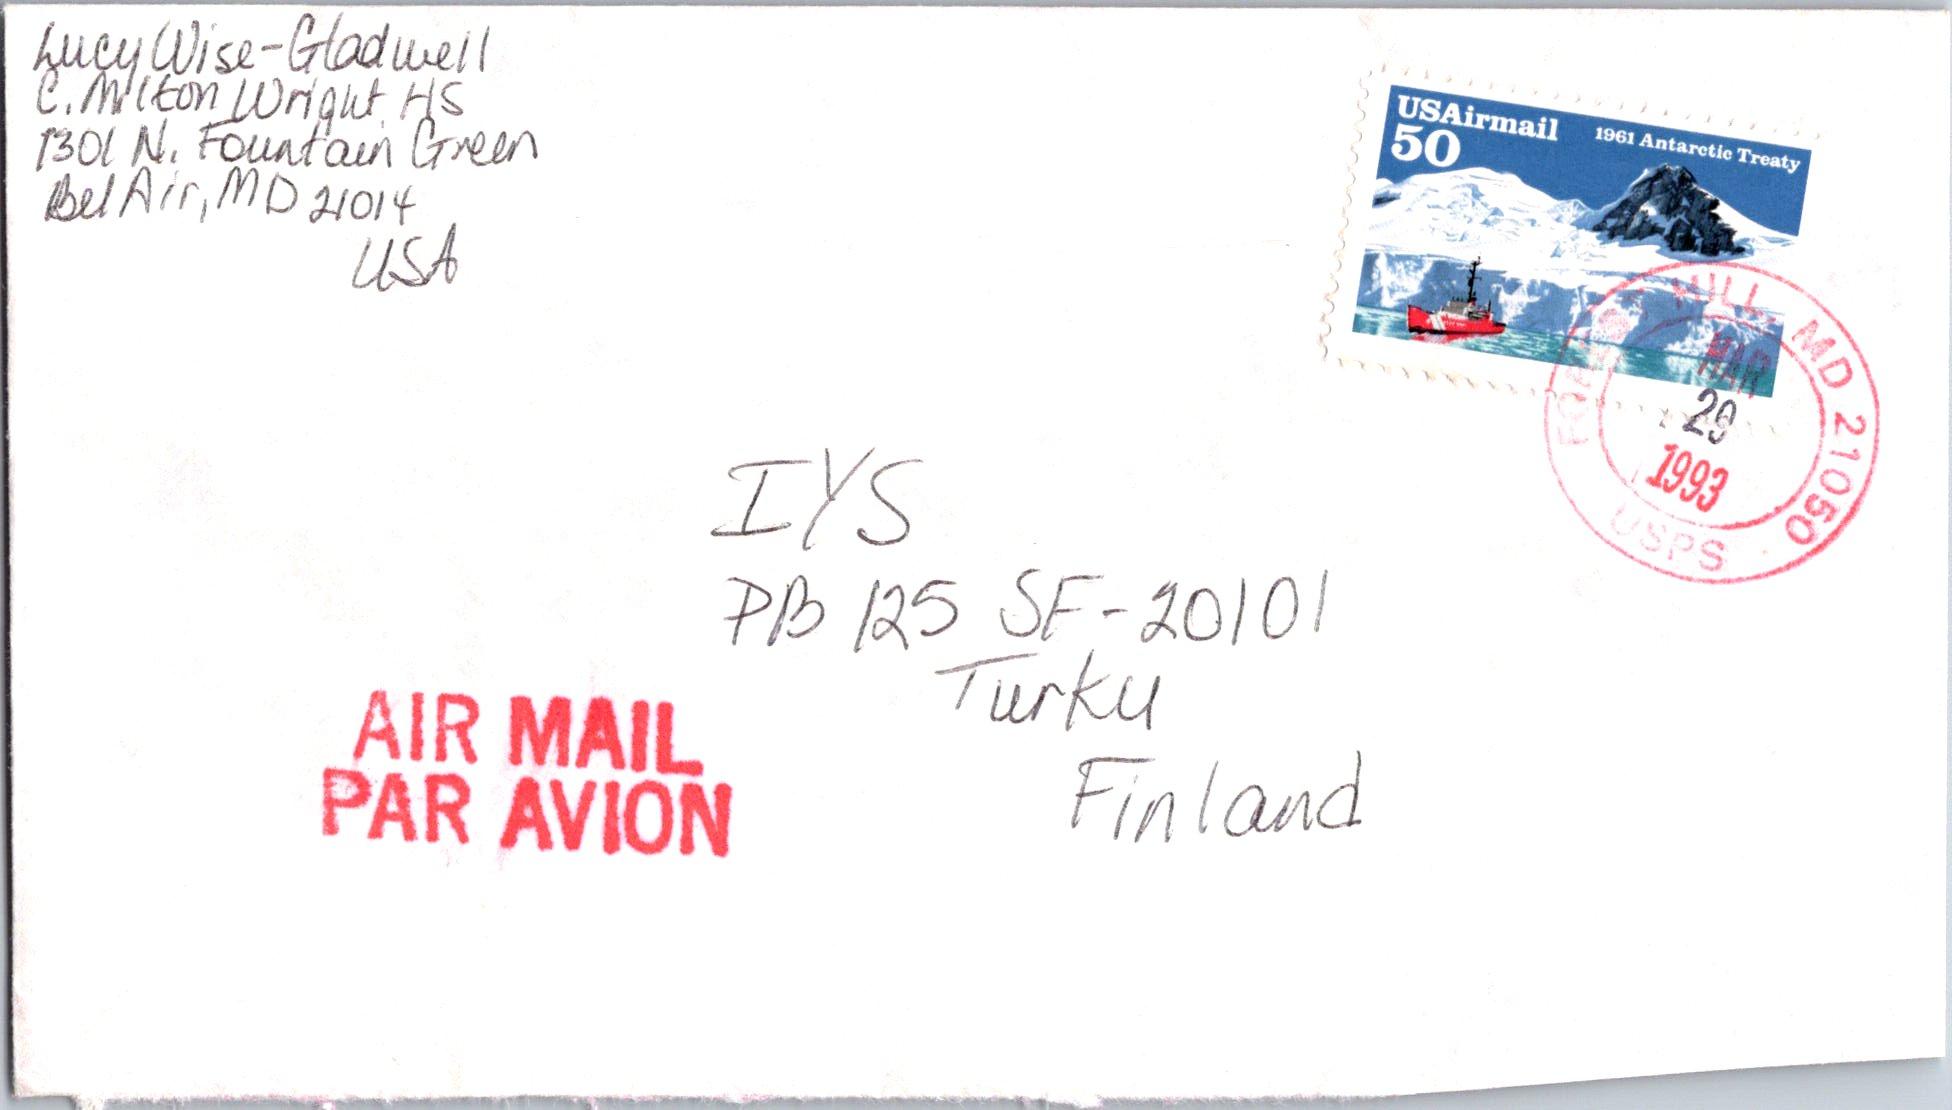 Lucy Wise-Gladwell
C. Milton Wright HS
1301 N. Fountain Green
Bel Air, MD 21014
USA
USAirmail
50
1961 Antarctic Treaty
FOREST HILL, MD 21050
MAR
29
1993
USPS
IYS
PB 125 SF-20101
Turku
Finland
AIR MAIL
PAR AVION